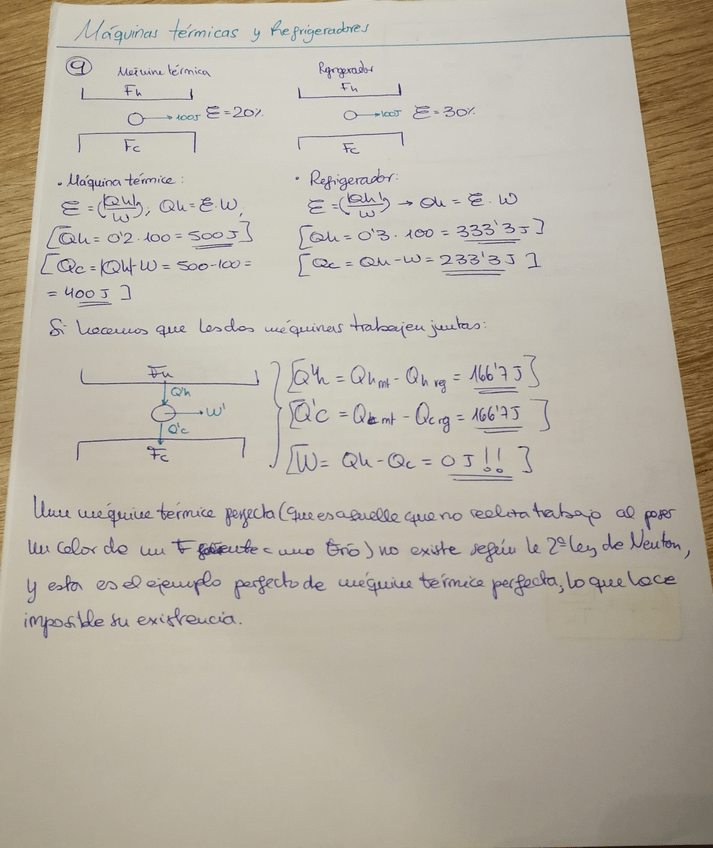 Máquinas térmicas y Refrigeradores
9 Máquina térmica Refrigerador
Fh Fh
→100J Ɛ=20% →100J Ɛ=30%
Fc Fc
• Máquina térmica: • Refrigerador:
Ɛ = (|Qh|/W), Qh = Ɛ·W, Ɛ = (|Qh|/W) → Qh = Ɛ·W
[Qh = 0'2·100 = 500J] [Qh = 0'3·100 = 333'3J]
[Qc = |Qh|-W = 500-100= [Qc = Qh-W = 233'3J]
= 400J]
Si hacemos que las dos máquinas trabajen juntas:
Fh
Q'h [Q'h = Qh mt - Qh rg = 166'7J]
W' [Q'c = Qc mt - Qc rg = 166'7J]
Q'c
Fc [W = Qh - Qc = 0J!!]
Una máquina térmica perfecta (que es aquella que no realiza trabajo al pasar
un calor de un F a uno frío) no existe según la 2ª ley de Newton,
y esta es el ejemplo perfecto de máquina térmica perfecta, lo que hace
imposible su existencia.